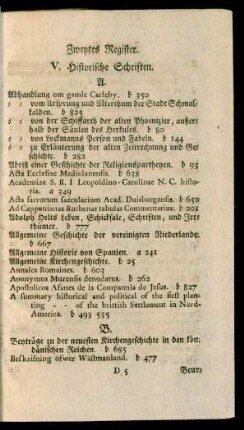 Zweytes Register.
V. Historische Schriften.
A.
Abhandlung om gamle Carleby. b 350
: : vom Ursprung und Alterthum der Stadt Schmal-
kalden. b 825
: : von der Schiffarth der alten Phoenizier, außer
halb der Säulen des Herkules. b 80
: : von Lockmanns Person und Fabeln. b 144
: : zu Erläuterung der alten Zeitrechnung und Ge-
schichte. b 282
Abriß einer Geschichte der Religionspartheyen. b 93
Acta Ecclesiae Mediolanensis. b 638
Academiae S. R. I. Leopoldino-Carolinae N. C. histo-
ria. a 349
Acta sacrorum saecularium Acad. Duisburgensis. b 650
Ad Cappominianas Ruthenas tabulas Commentarius. b 202
Adolph Helts Leben, Schicksale, Schriften, und Irr-
thümer. b 777
Allgemeine Geschichte der vereinigten Niederlande.
b 667
Allgemeine Historie von Spanien. a 241
Allgemeine Kirchengeschichte. b 25
Annales Romaines. b 603
Anonymus Murensis denudatus. b 262
Apostolicos Afanes de la Compannia de Jesus. b 827
A summary historical and political of the first plan-
ting - - of the brittish Settlement in Nord-
America. b 493 535
B.
Beyträge zu der neuesten Kirchengeschichte in den kön.
dänischen Reichen. b 685
Beskrifning öfwer Wästmanland. b 477
D 5